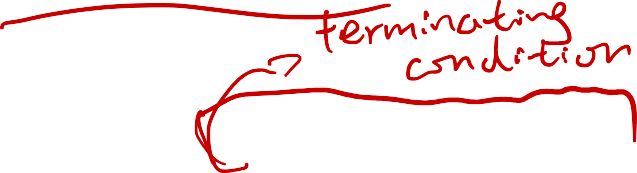 terminating
condition